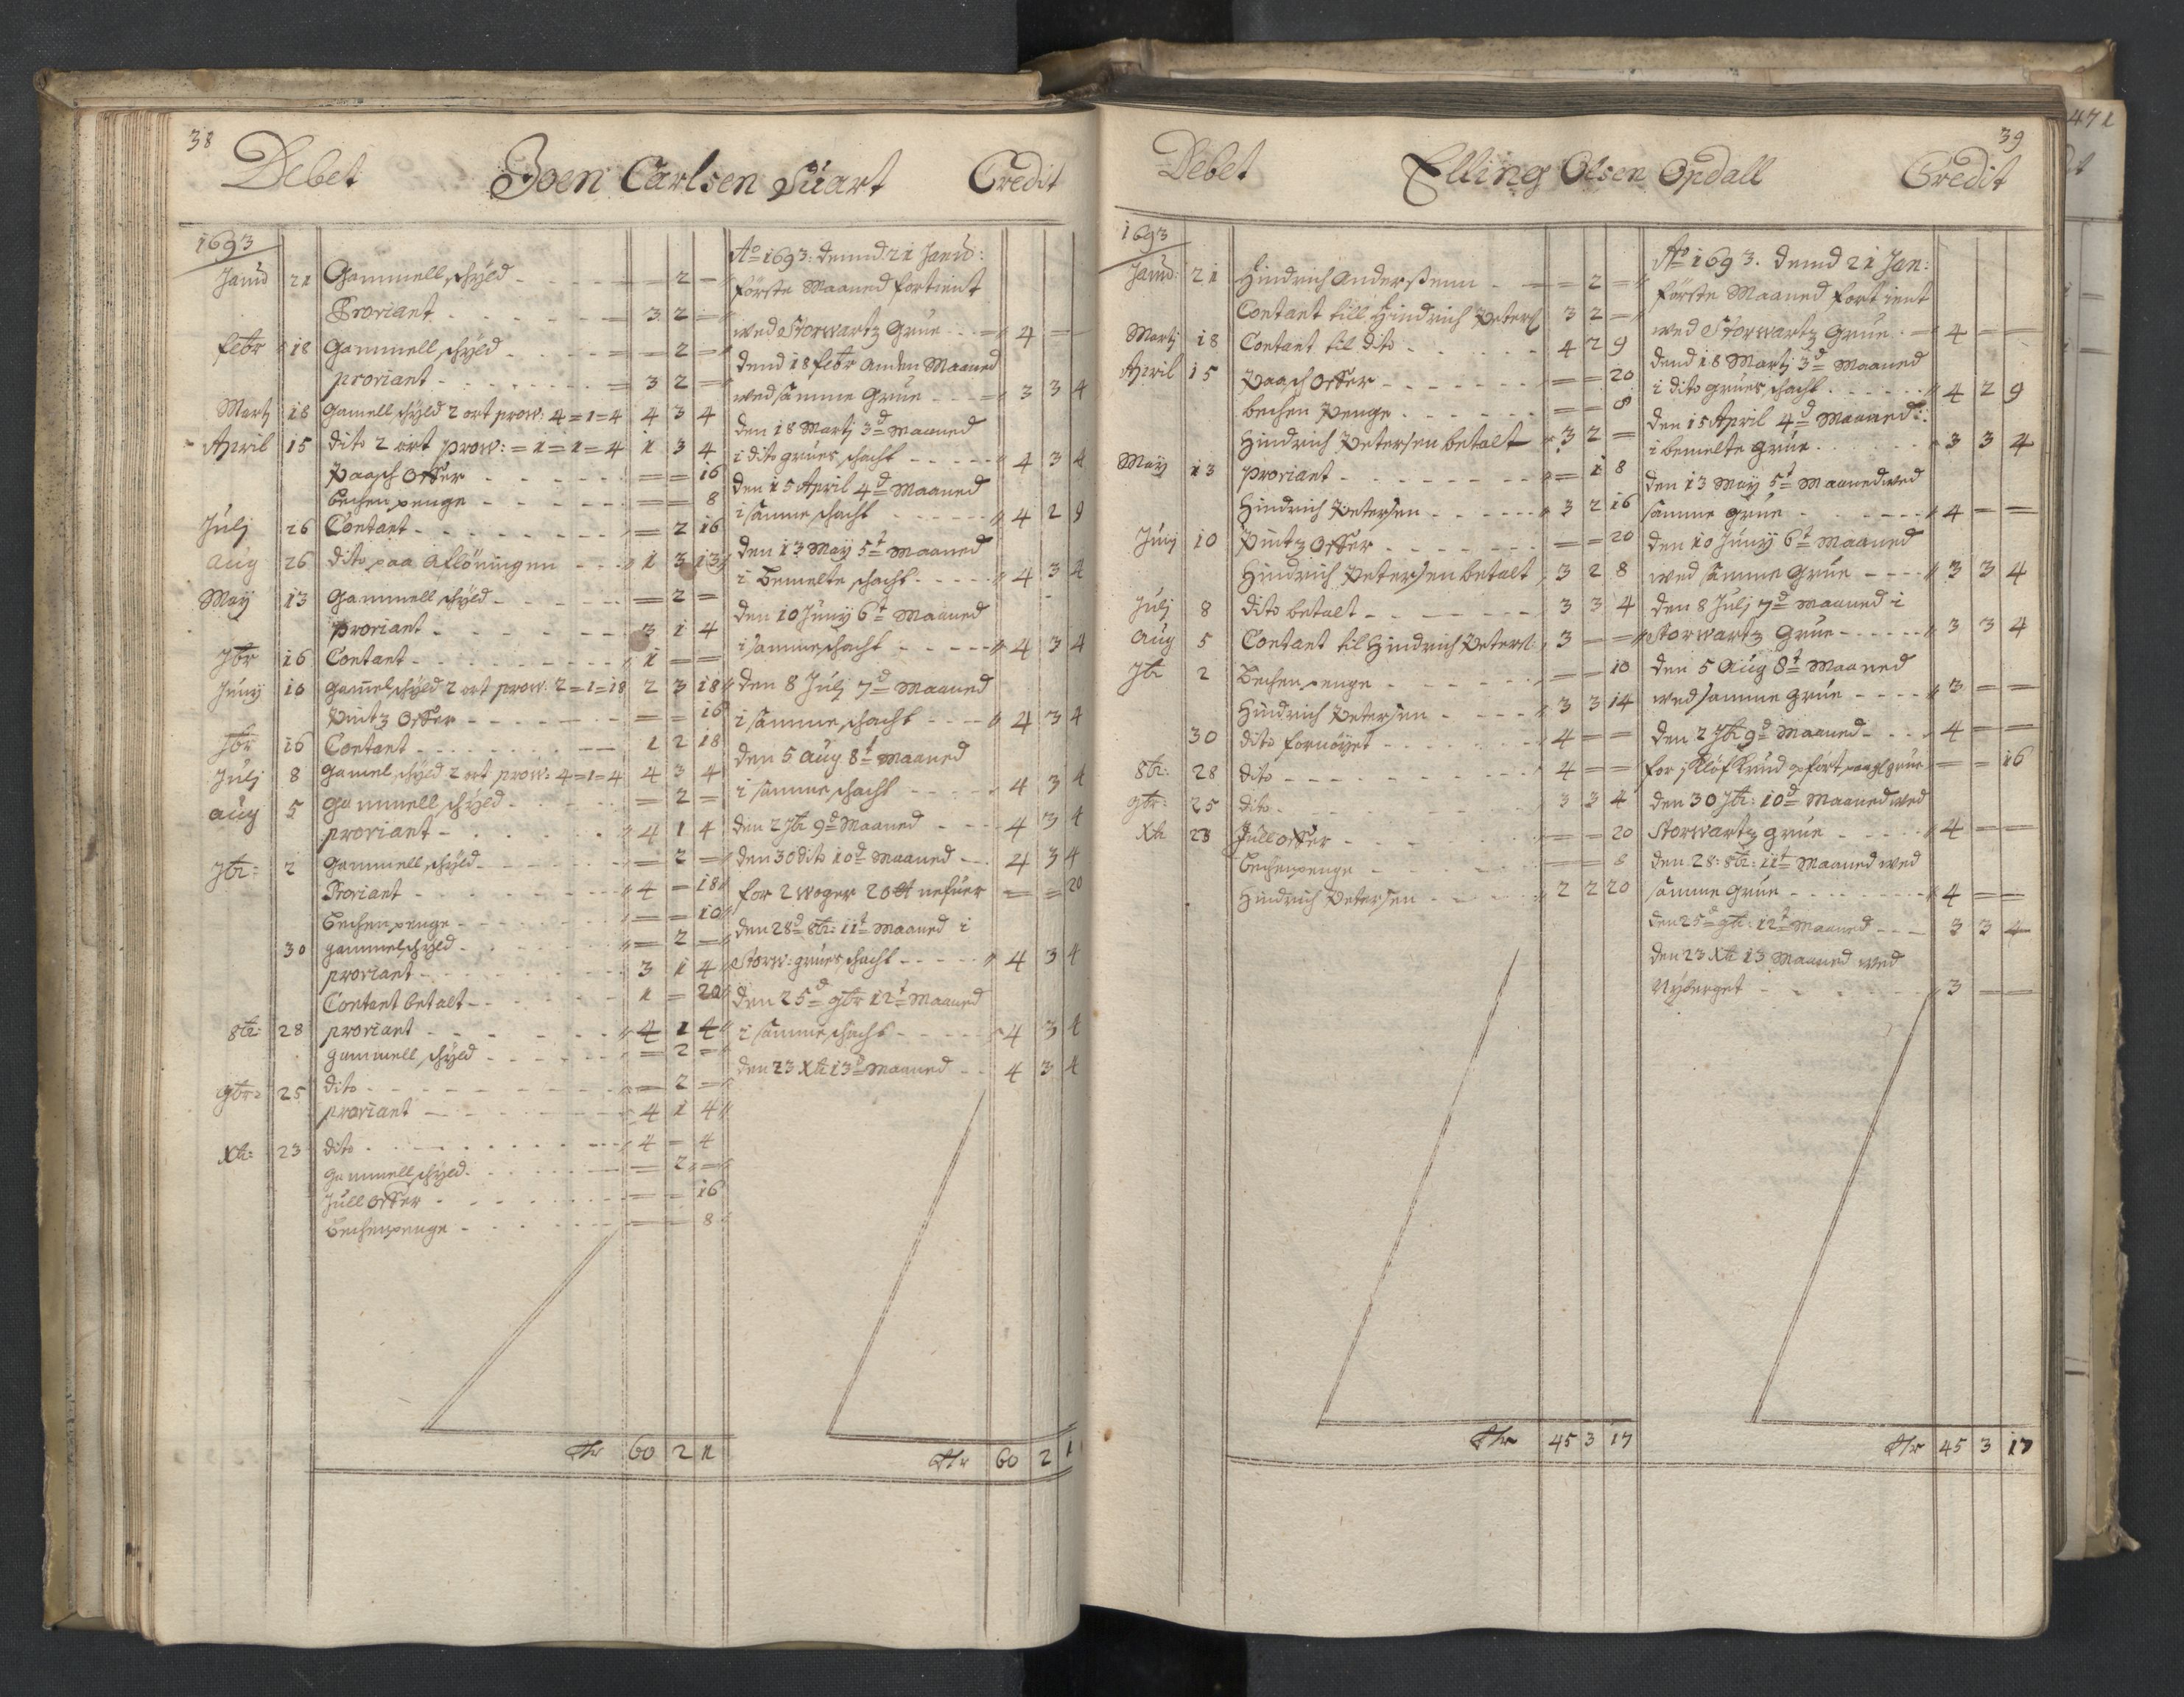 38
Debet Joen Carlsen Suart Credit
1693
Janu 21 Gammell schyld - - = 2 =
Proviant - - - 3 2 =
febr 18 Gammell schyld - - = 2 =
proviant - - - 3 2 =
Martj 18 Gamell schyld 2 ort prow: 4=1=4 4 3 4
April 15 dito 2 ort prow: =1=1=4 1 3 4
Paasch offer - - - = = 16
bechen penge - - - = = 8
Julj 26 Contant - - - = 2 16
Aug 26 dito paa Aflöningen - - - 1 3 13
May 13 Gammell schyld - - - = 2 =
proviant - - - 3 1 4
7br 16 Contant - - - 1 = =
Junij 10 gamel schyld 2 ort prow: 2=1=18 2 3 18
Pintz offer - - - = = 16
7br 16 Contant - - - 1 2 18
Julj 8 Gamel schyld 2 ort prow: 4=1=4 4 3 4
Aug 5 Gammell schyld - - - = 2 =
proviant - - - 4 1 4
7br: 2 Gammell schyld - - - = 2 =
Proviant - - - 4 = 18
bechen penge - - - = = 10
30 gammel schyld - - - = 2 =
proviant - - - 3 1 4
Contant betalt - - - 1 = 20
8br: 28 proviant - - - 4 1 4
gammell schyld - - - = 2 =
9br: 25 dito - - - = 2 =
proviant - - - 4 1 4
Xbr: 23 dito - - - 4 = 4
gammell schyld - - - = 2 =
Jull offer - - - = = 16
bechenpenge - - - = = 8
Rdr 60 2 1
Ao 1693: dennd 21 Janu:
förste Maaned fortient
wed Storwartz Grue - - - 4 = =
dend 18 febr anden Maaned
wed samme Grue - - - 3 3 4
den 18 Martj 3d Maaned
i dito grues schacht - - - 4 3 4
den 15 April 4d Maaned
i samme schacht - - - 4 2 9
den 13 May 5t Maaned
i bemelte schacht - - - 4 3 4
den 10 Junij 6t Maaned
i samme schacht - - - 4 3 4
den 8 Julj 7d Maaned
i samme schacht - - - 4 3 4
den 5 Aug 8t Maaned
i samme schacht - - - 4 3 4
den 2 7br 9d Maaned - - - 4 3 4
den 30 dito 10d Maaned - - - 4 3 4
for 2 woger 20 nefuer = = 20
den 28d 8br: 11t Maaned i
Storw: grues schacht - - - 4 3 4
den 25d 9br 12t Maaned
i samme schacht - - - 4 3 4
den 23 Xbr 13d Maaned - - 4 3 4
Rdr 60 2 1
39
Debet Elling Olsen Opdall Credit
1693
Janu: 21 Hindrich Anderssenn - - = 2 =
Contant till Hindrich Peters 3 2 =
Martj 18 Contant til dito - - - 4 2 9
April 15 Paasch offer - - - = = 20
bechen Penge - - - = = 8
Hindrich Petersen betalt 3 2 =
May 13 proviant - - - = 1 8
Hindrich Petersen - - - 3 2 16
Junj 10 Pintz offer - - - = = 20
Hindrich Petersen betalt 3 2 8
Julj 8 dito betalt - - - 3 3 4
Aug 5 Contant til Hindrich Peters: 3 = =
7br 2 bechen penge - - - = = 10
Hindrich Petersen - - - 3 3 14
30 dito fornöyet - - - 4 = =
8br: 28 dito - - - 4 = =
9br: 25 dito - - - 3 3 4
Xbr 23 Jull offer - - - = = 20
bechenpenge - - - = = 8
Hindrich Petersen - - - 2 2 20
Rdr 45 3 17
Ao 1693. dennd 21 Jan:
förste Maaned fortient
wed Storwartz Grue - 4 = =
dend 18 Martj 3d Maaned
i dito grues schacht - - - 4 2 9
den 15 April 4d Maaned:
i bemelte grue - - - 3 3 4
den 13 May 5t Maaned wed
samme grue - - - 4 = =
den 10 Junij 6t Maaned
wed samme Grue - - - 3 3 4
den 8 Julj 7d Maaned i
Storwartz Grue - - - 3 3 4
den 5 Aug 8t Maaned
wed samme Grue - - - 3 = =
den 2 7br 9d Maaned - - - 4 = =
for = = 16
den 30 7br: 10d Maaned wed
Storwartz grue - - - 4 = =
den 28: 8br: 11t Maaned wed
samme Grue - - - 4 = =
den 25d 9br: 12t Maaned - - - 3 3 4
den 23 Xbr 13 Maaned wed
Nyberget - - - 3 = =
Rdr 45 3 17
471